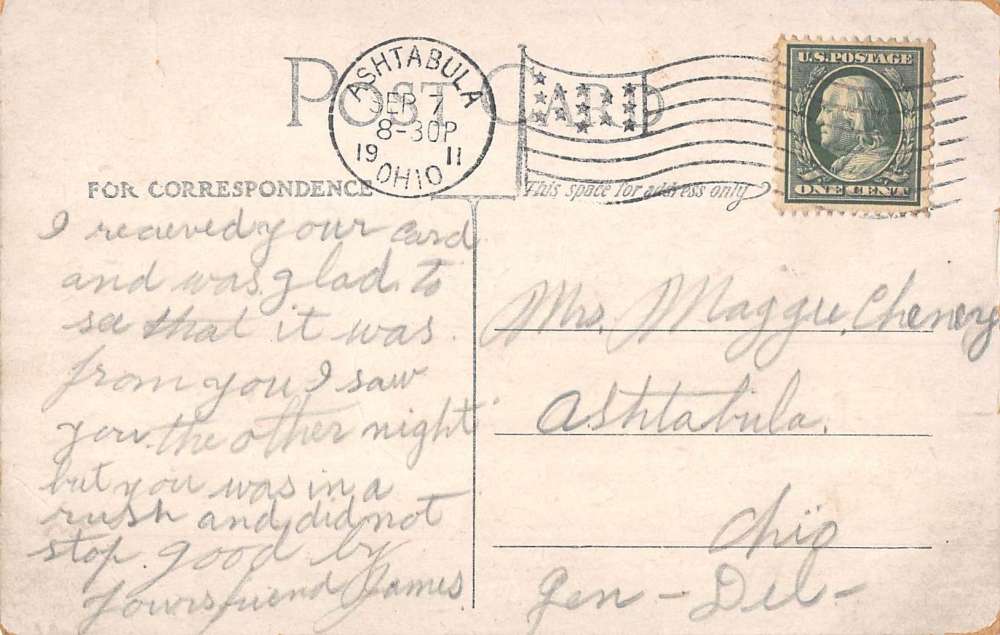 POST CARD
ASHTABULA
SEP 7
8-30P
19 11
OHIO
U.S. POSTAGE
ONE CENT
FOR CORRESPONDENCE
This space for address only
I recieved your card
and was glad to
see that it was
from you I saw
you the other night
but you was in a
rush and did not
stop. good by
Yours friend James
Mrs. Maggie Cheney
Ashtabula.
Ohio
Gen - Del -